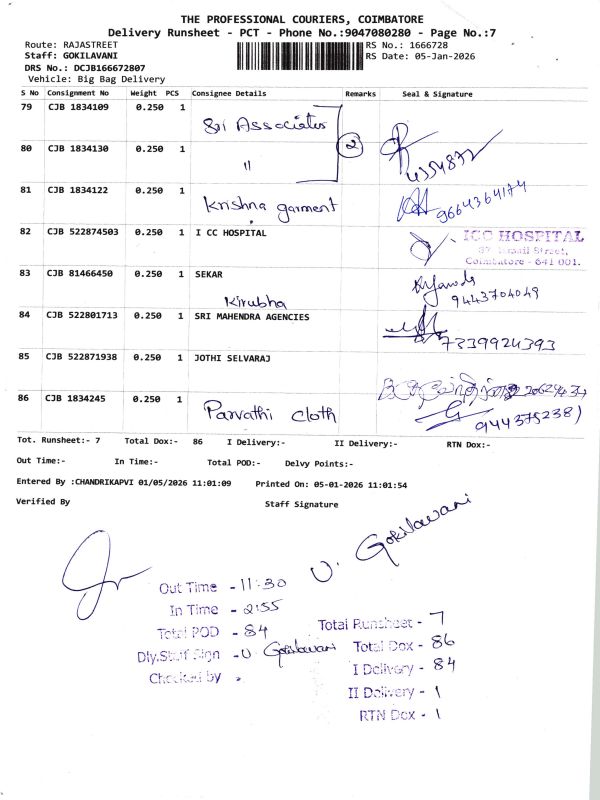 THE PROFESSIONAL COURIERS, COIMBATORE
Delivery Runsheet - PCT - Phone No.:9047080280 - Page No.:7
Route: RAJASTREET
Staff: GOKILAVANI
DRS No.: DCJB166672807
Vehicle: Big Bag Delivery
RS No.: 1666728
RS Date: 05-Jan-2026
S No Consignment No Weight PCS Consignee Details Remarks Seal & Signature
79 CJB 1834109 0.250 1 Sri Associates
2
80 CJB 1834130 0.250 1 "
81 CJB 1834122 0.250 1 Krishna garment 9664364174
82 CJB 522874503 0.250 1 I CC HOSPITAL
ICC HOSPITAL
Street,
Coimbatore - 641 001.
83 CJB 81466450 0.250 1 SEKAR
Kirubha 9443704049
84 CJB 522801713 0.250 1 SRI MAHENDRA AGENCIES
7339924393
85 CJB 522871938 0.250 1 JOTHI SELVARAJ
86 CJB 1834245 0.250 1 Parvathi cloth 9443752381
Tot. Runsheet:- 7 Total Dox:- 86 I Delivery:- II Delivery:- RTN Dox:-
Out Time:- In Time:- Total POD:- Delvy Points:-
Entered By :CHANDRIKAPVI 01/05/2026 11:01:09 Printed On: 05-01-2026 11:01:54
Verified By Staff Signature
U. Gokilavani
Out Time - 11:30
In Time - 2:55
Total POD - 84
Dly.Staff Sign - U Gokilavani
Checked by
Total Runsheet - 7
Total Dox - 86
I Delivery - 84
II Delivery - 1
RTN Dox - 1